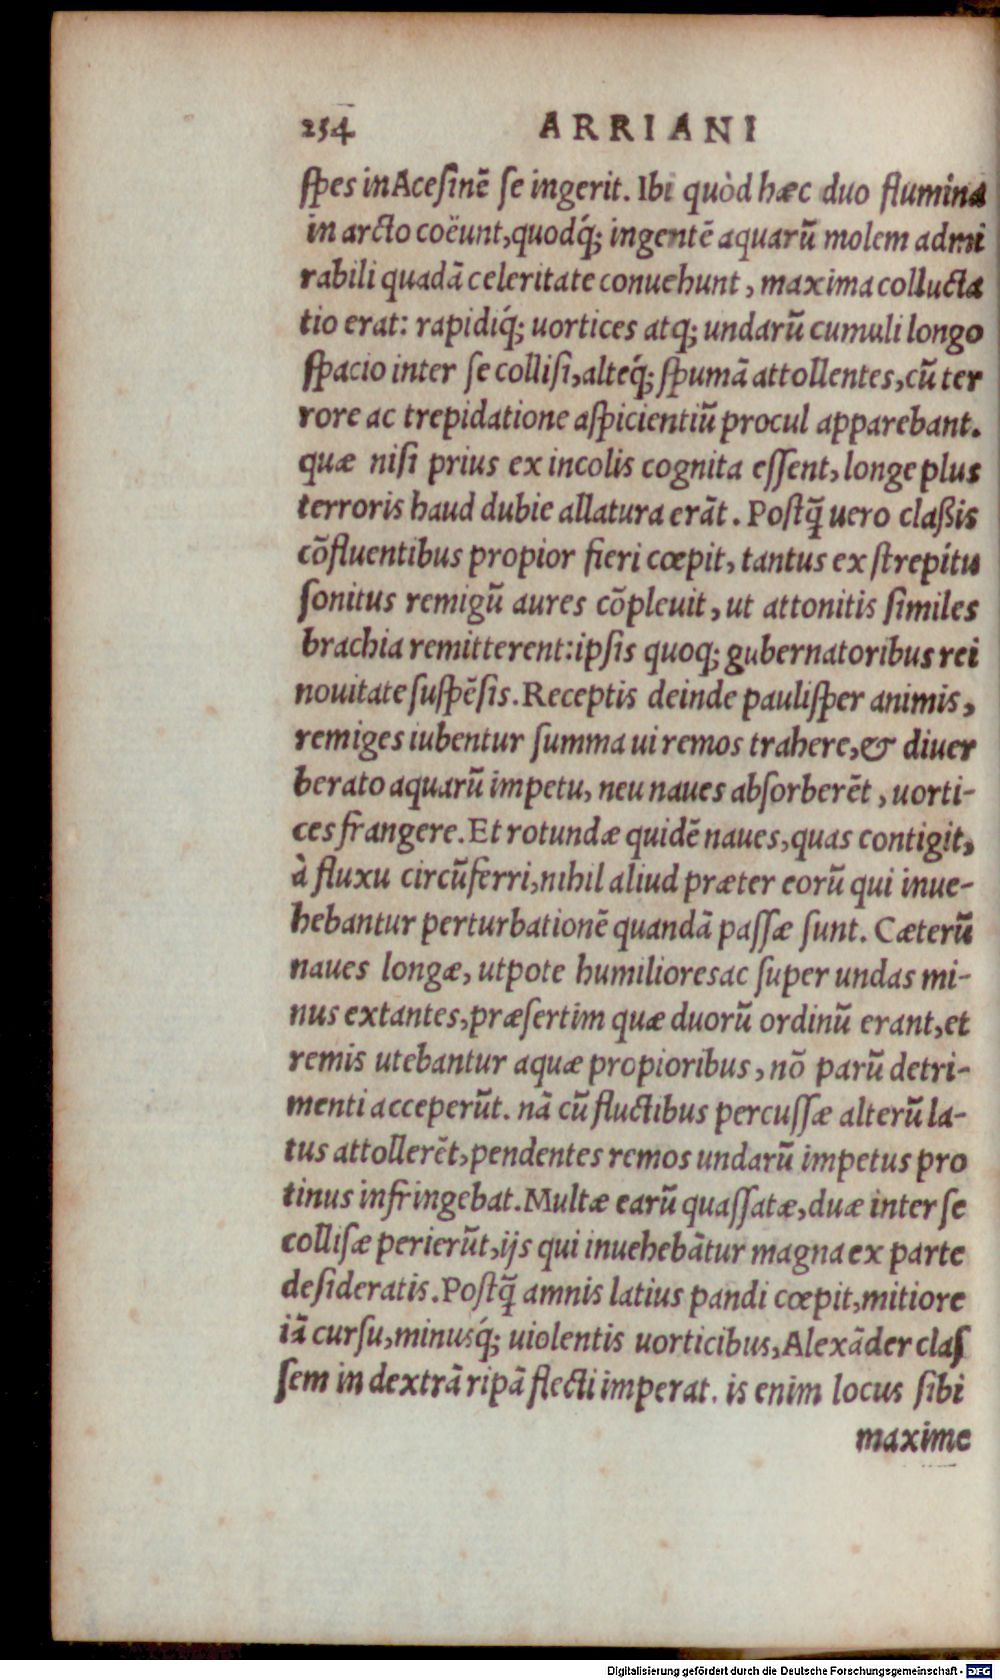 254 ARRIANI
ſpes in Aceſinē ſe ingerit. Ibi quòd hæc duo flumina
in arcto coëunt, quodq́; ingentē aquarū molem admi
rabili quadā celeritate conuehunt, maxima collucta
tio erat: rapidiq́; uortices atq; undarū cumuli longo
ſpacio inter ſe colliſi, alteq́; ſpumā attollentes, cū ter
rore ac trepidatione aſpicientiū procul apparebant.
quæ niſi prius ex incolis cognita eſſent, longe plus
terroris haud dubie allatura erāt. Poſtq̄ uero claßis
cōfluentibus propior fieri cœpit, tantus ex ſtrepitu
ſonitus remigū aures cōpleuit, ut attonitis ſimiles
brachia remitterent: ipſis quoq; gubernatoribus rei
nouitate ſuſpēſis. Receptis deinde pauliſper animis,
remiges iubentur ſumma ui remos trahere, & diuer
berato aquarū impetu, neu naues abſorberēt, uorti-
ces frangere. Et rotundæ quidē naues, quas contigit,
à fluxu circūferri, nihil aliud præter eorū qui inue-
hebantur perturbationē quandā paſſæ ſunt. Cæterū
naues longæ, utpote humiliores ac ſuper undas mi-
nus extantes, præſertim quæ duorū ordinū erant, et
remis utebantur aquæ propioribus, nō parū detri-
menti acceperūt. nā cū fluctibus percuſſæ alterū la-
tus attollerēt, pendentes remos undarū impetus pro
tinus infringebat. Multæ earū quaſſatæ, duæ inter ſe
colliſæ perierūt, ijs qui inuehebātur magna ex parte
deſideratis. Poſtq̄ amnis latius pandi cœpit, mitiore
iā curſu, minusq́; uiolentis uorticibus, Alexāder claſ
ſem in dextrā ripā flecti imperat. is enim locus ſibi
maxime
Digitalisierung gefördert durch die Deutsche Forschungsgemeinschaft - DFG